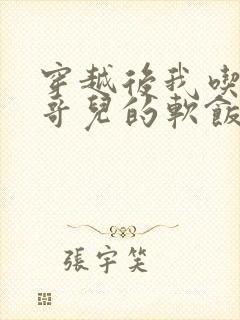 穿越後我喫
哥兒的軟飯
張宇笑